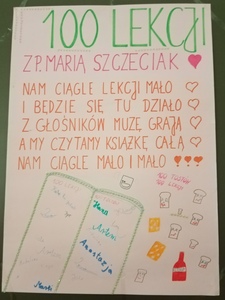 100 LEKCJI
Z P. MARIĄ SZCZECIAK
NAM CIĄGLE LEKCJI MAŁO
I BĘDZIE SIĘ TU DZIAŁO
Z GŁOŚNIKÓW MUZĘ GRAJĄ
A MY CZYTAMY KSIĄŻKĘ CAŁĄ
NAM CIĄGLE MAŁO I MAŁO !!!
Hania
Antoni
Anastazja
100 TOSTÓW